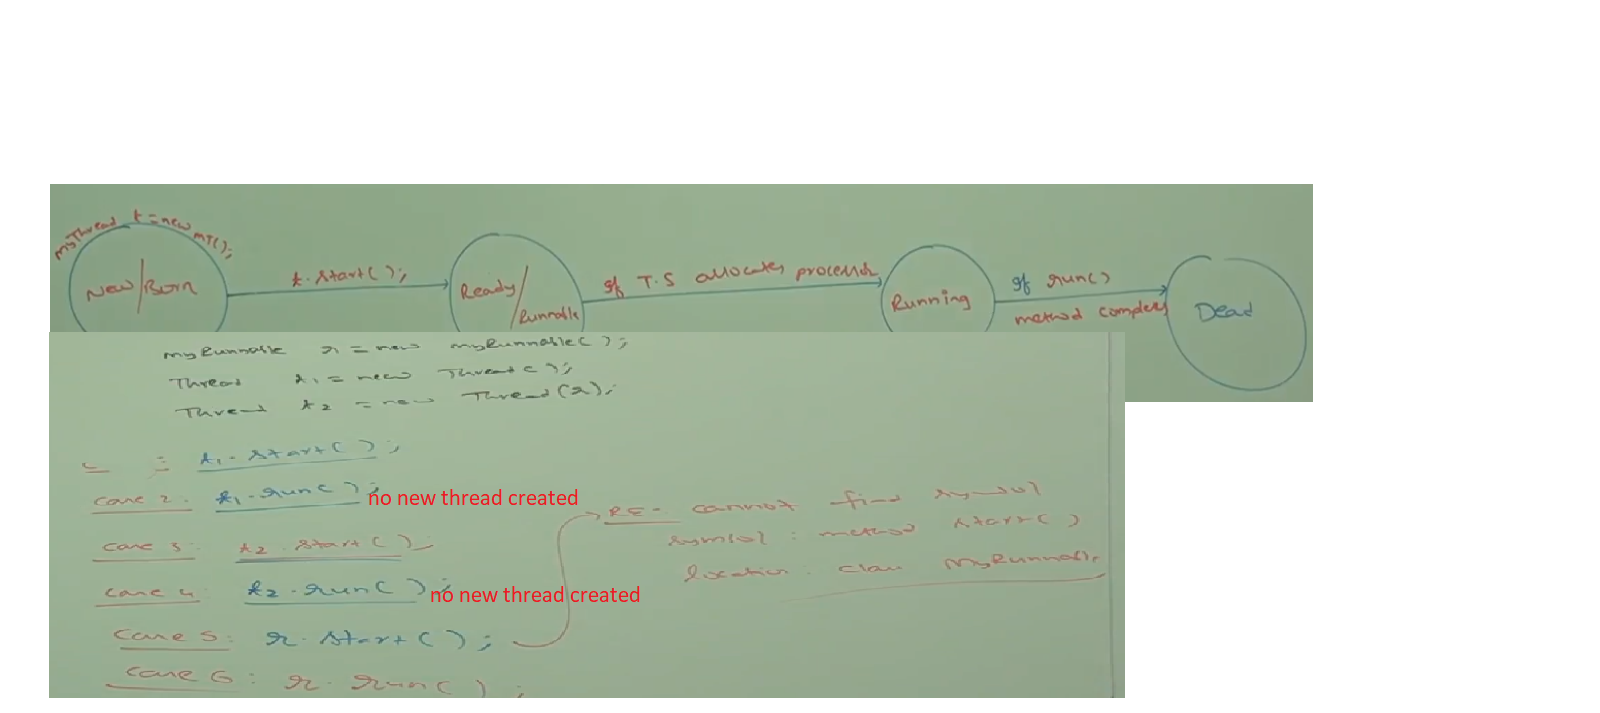 MyThread t = new MT();
New/Born
t.start();
Ready/
Runnable
If T.S allocates processor
Running
If run()
method completes
Dead
MyRunnable r = new MyRunnable();
Thread t1 = new Thread();
Thread t2 = new Thread(r);
t1.start();
case 2: t1.run(); no new thread created
case 3: t2.start();
case 4: t2.run(); no new thread created
case 5: r.start();
case 6: r.run();
cannot find symbol
symbol: method start()
location: class MyRunnable